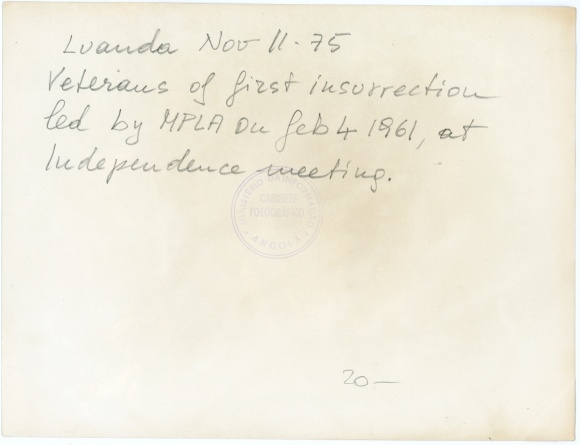 Luanda Nov 11-75
Veterans of first insurrection
led by MPLA on feb 4 1961, at
Independence meeting.
MINISTÉRIO DA INFORMAÇÃO
GABINETE
FOTOGRÁFICO
ANGOLA
20—